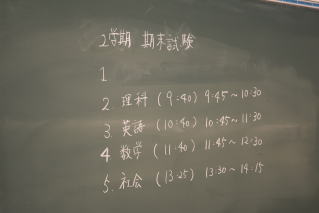 2学期 期末試験
1
2. 理科 (9:40) 9:45～10:30
3. 英語 (10:40) 10:45～11:30
4 数学 (11:40) 11:45～12:30
5. 社会 (13:25) 13:30～14:15